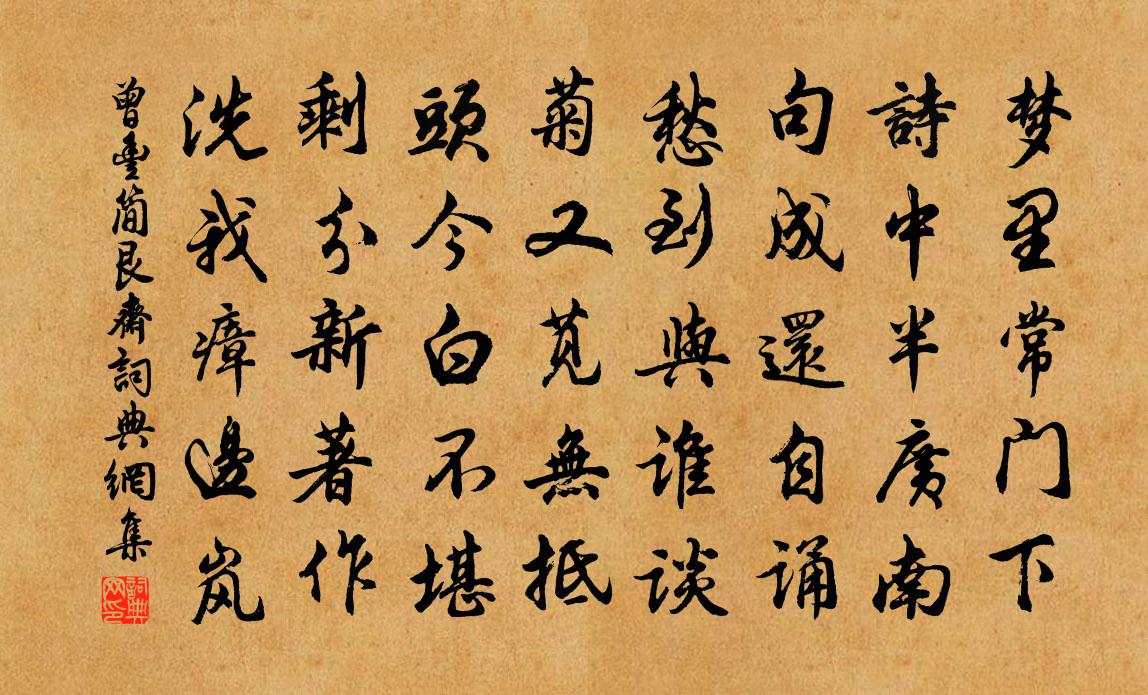 梦里常门下
詩中半廣南
句成還自诵
愁到與谁谈
菊又莧無抵
頭今白不堪
剩分新著作
洗我瘴邊岚
曾豐简艮齋詞典網集
詞典网印